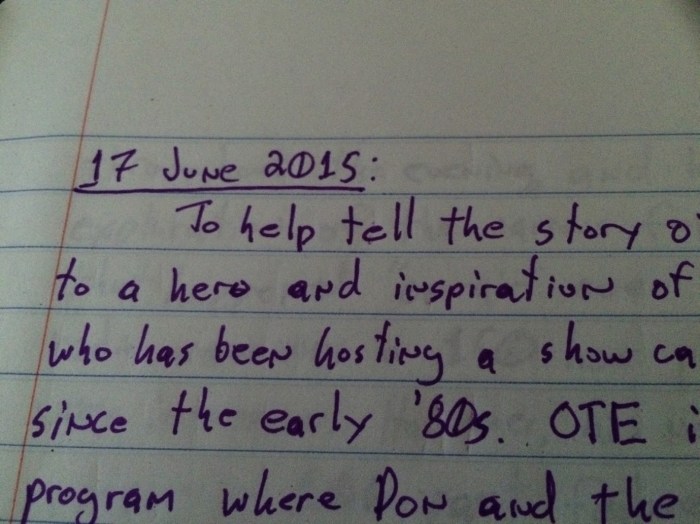 17 June 2015:
To help tell the story o
to a hero and inspiration of
who has been hosting a show ca
since the early '80s. OTE i
program where Don and the